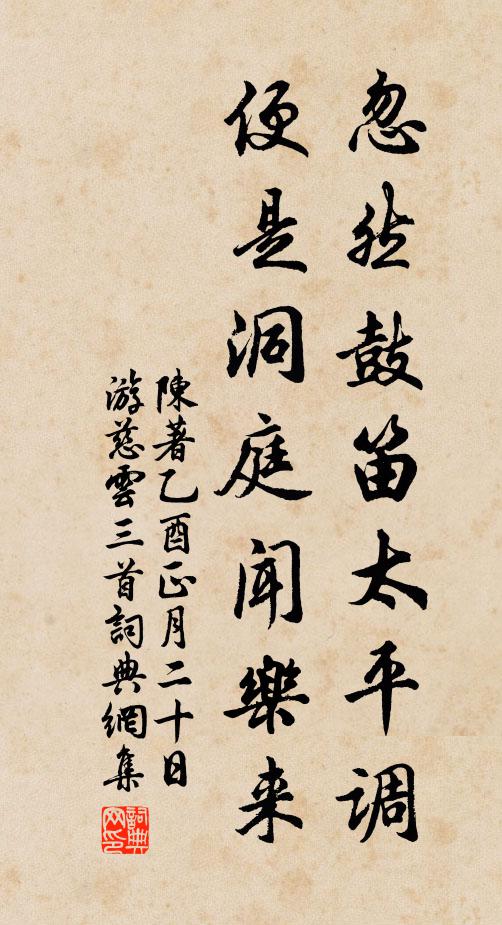 忽然鼓笛太平调
便是洞庭闻樂来
陳著乙酉正月二十日
游慈雲三首詞典網集
詞典网印